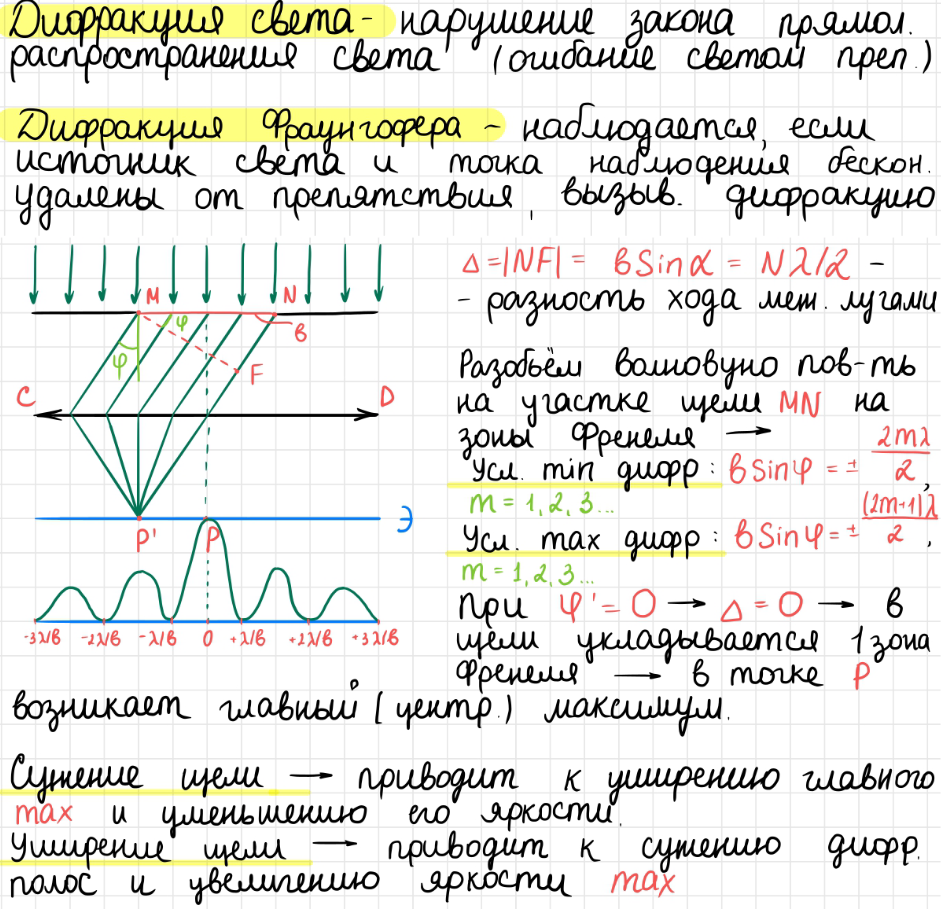 Дифракция света - нарушение закона прямол.
распространения света (огибание светом преп.)
Дифракция Фраунгофера - наблюдается, если
источник света и точка наблюдения бескон.
удалены от препятствия, вызыв. дифракцию
Δ=|NF| = bSinα = Nλ/2 -
- разность хода меж. лучами
M
N
φ
b
φ
F
C
D
Разобьём волновую пов-ть
на участке щели MN на
зоны Френеля →
Усл. min дифр: bSinφ = ± 2mλ/2,
m = 1, 2, 3...
Усл. max дифр: bSinφ = ± (2m+1)λ/2,
m = 1, 2, 3...
Э
P'
P
-3λ/b -2λ/b -λ/b 0 +λ/b +2λ/b +3λ/b
При φ'= 0 → Δ = 0 → в
щели укладывается 1 зона
Френеля → в точке P
возникает главный (центр.) максимум.
Сужение щели → приводит к уширению главного
max и уменьшению его яркости.
Уширение щели → приводит к сужению дифр.
полос и увеличению яркости max